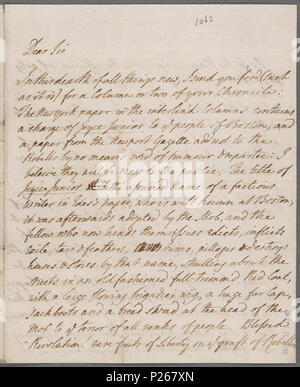 1062
Dear Sir
In this dearth of all things new, I send you food (such
as it is) for a column or two of your Chronicle:
The Newyork paper in the interlined Columns contains
a charge of Joyce Junior to ye people of Boston, and
a paper from the Newport Gazette adrest to the
Rebells by no means void of humour & repartee: I
beleive they will be new to the public. The title of
Joyce Junior the assumed name of a factious
writer in Edes's paper, who is well known at Boston,
it was afterwards adopted by the Mob, and the
fellow who now heads them issues edicts, inflicts
toils, tars & feathers, ruins, pillages & destroys
houses & stores by that name, strutting about the
streets in an old fashioned full trimmed Red Coat,
with a large flowing brigadier wig, a huge fur Cap,
Jackboots and a broad Sword at the head of the
Mob to ye terror of all ranks of people. Blessed
Revolution. rare fruits of Liberty on ye graft of Rebellion
alamy
P267XN